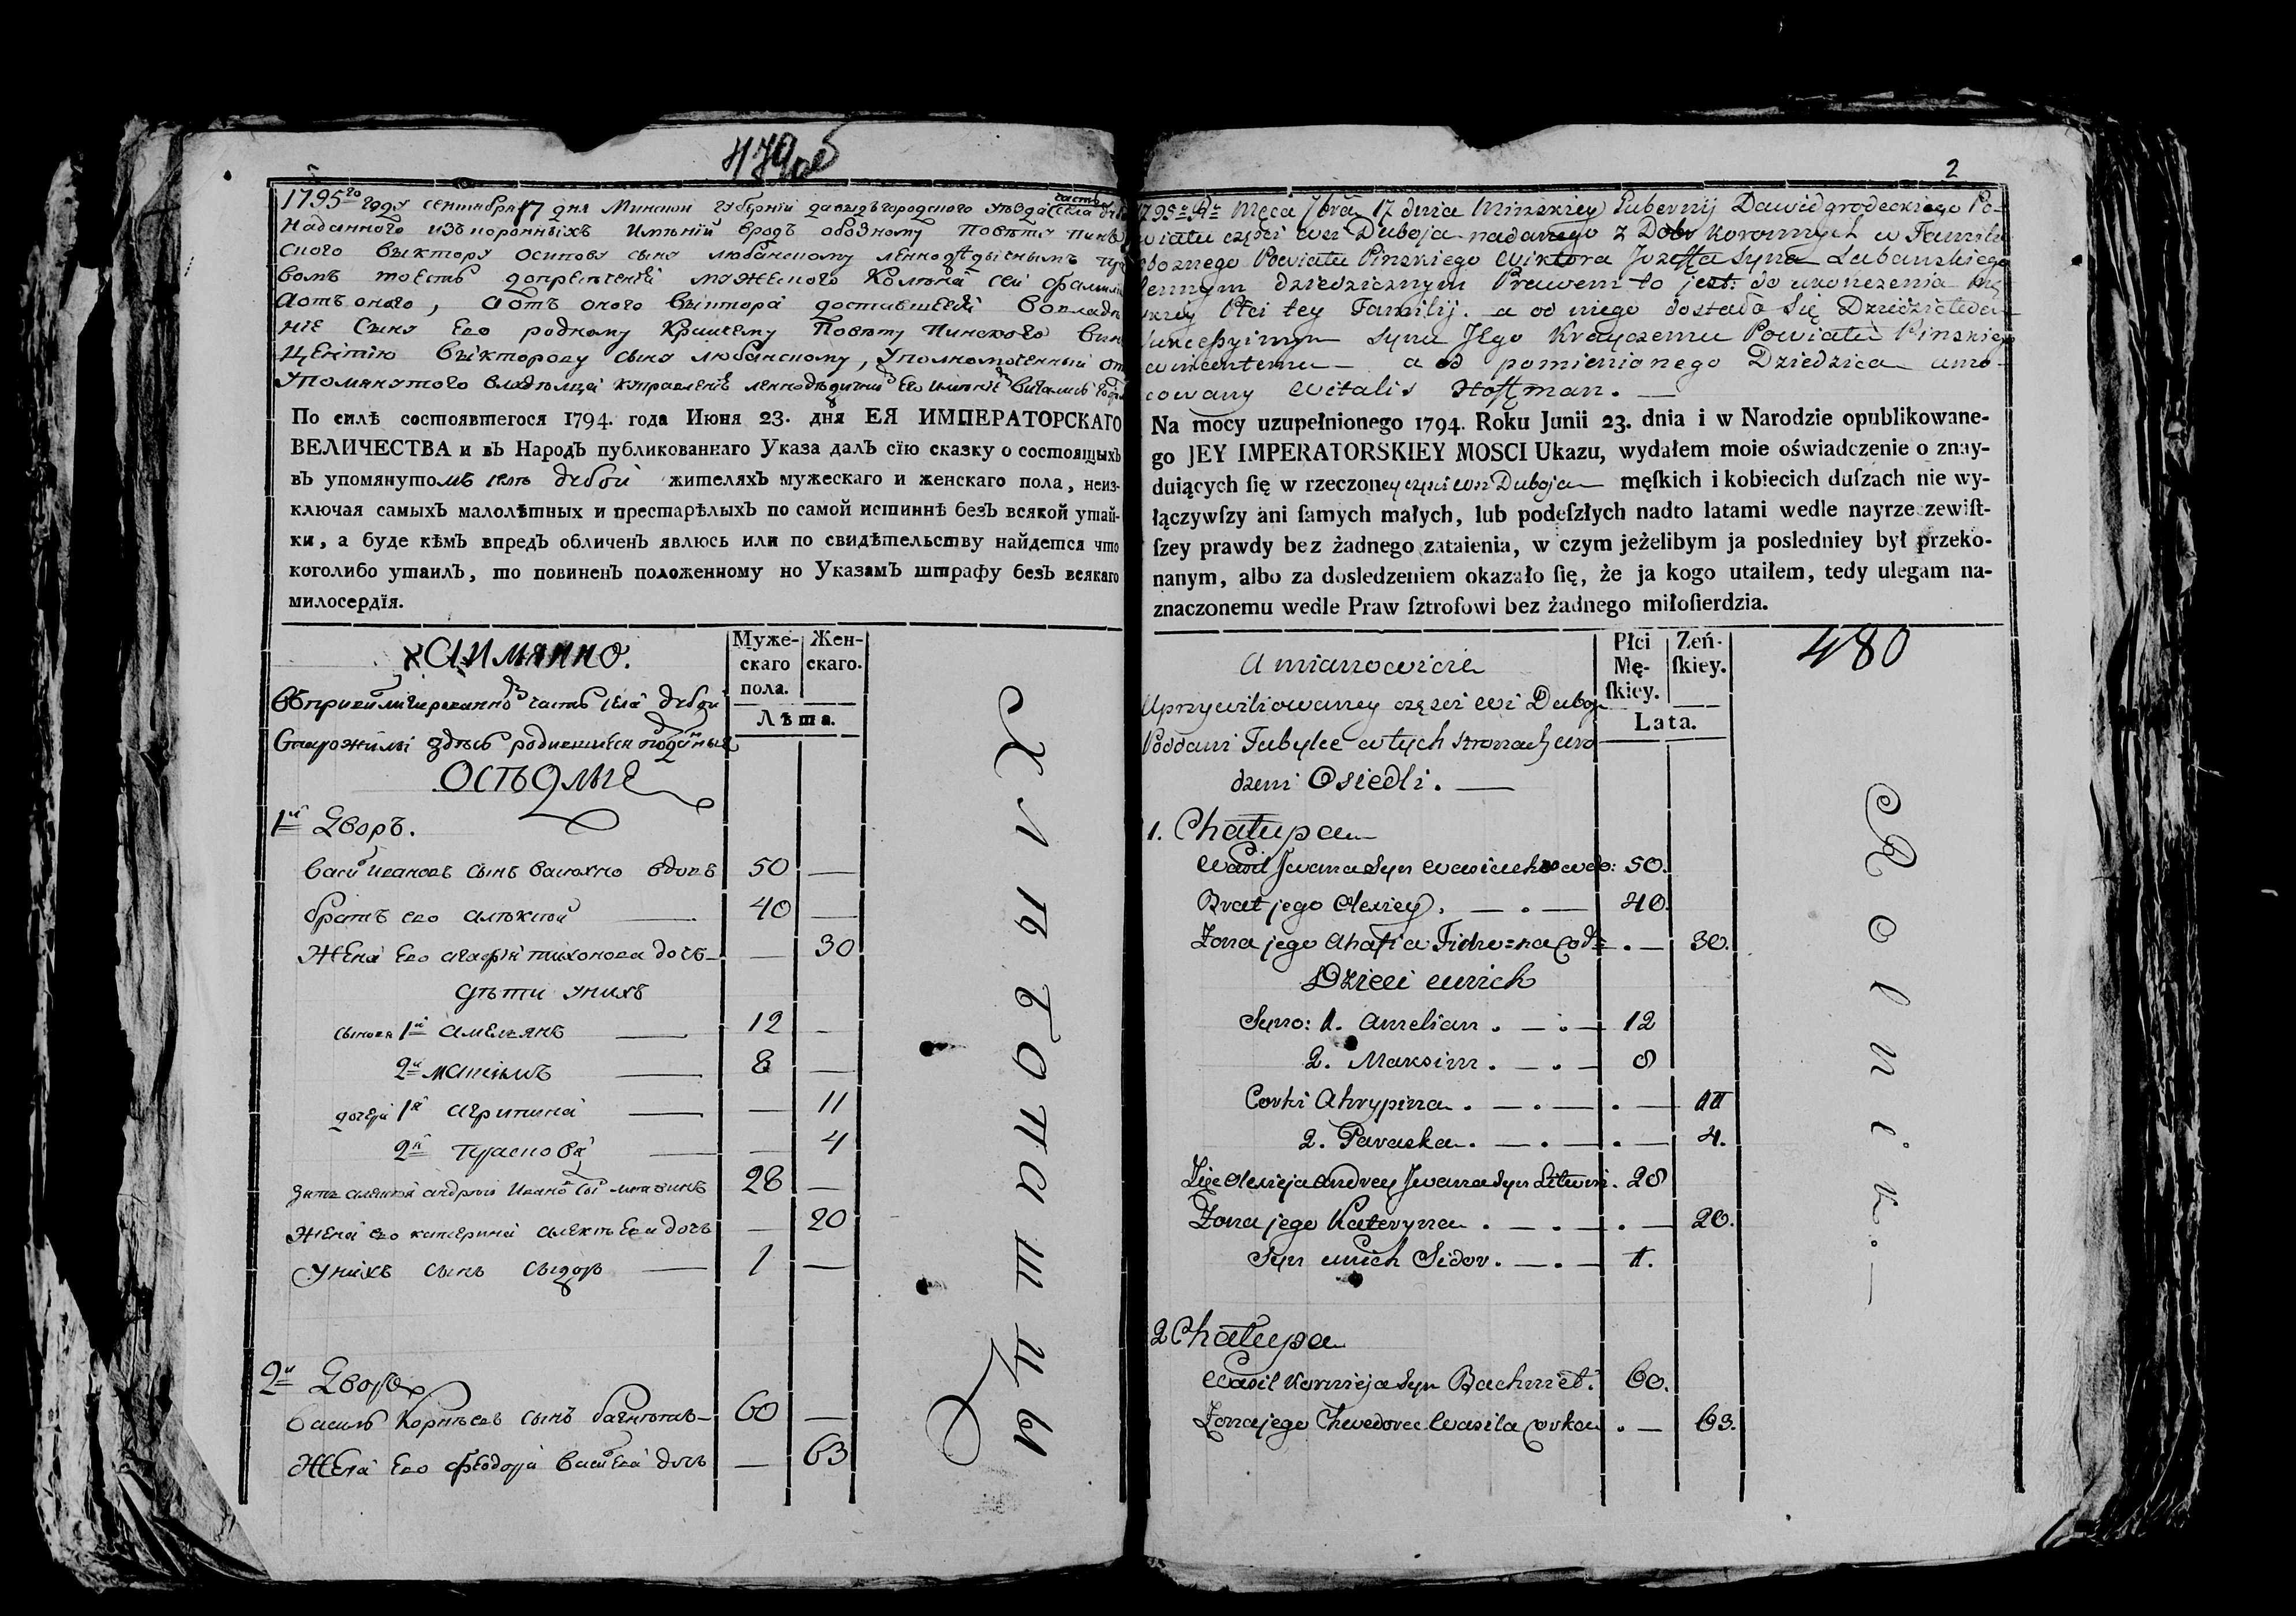 479об
1795го году сентября 17 дня Минской губерніи давыдъгородского уѣзда часть села
Наданного изъ коронныхъ имѣній вродъ обозному Повѣта Пинъ
ского Выктору осипову сыну любанскому леннодѣдычнымъ пра
вомъ тоесть допресѣченій мужеского Колѣна сей фамиліи
аотъ оного, аотъ оного Выктора доставшейся вовладѣ
ніе сыну Его родному Крайчему Повѣту Пинского Вин
центію Выкторову сыну любанскому, уполномоченный от
упомянутого владѣльца
По силѣ состоявшегося 1794. года Июня 23. дня ЕЯ ИМПЕРАТОРСКАГО
ВЕЛИЧЕСТВА и въ Народъ публикованнаго Указа далъ сїю сказку о состоящыхъ
въ упомянутомъ селѣ дубой жителяхъ мужескаго и женскаго пола, неиз-
ключая самыхъ малолѣтных и престарѣлыхъ по самой истиннѣ безъ всякой утай-
ки, а буде кѣмъ впредъ обличенъ явлюсь или по свидѣтельству найдется что
коголибо утаилъ, то повиненъ положенному по Указамъ штрафу безъ всякаго
милосердїя.
Аимянно.
Муже-
скаго
пола.
Жен-
скаго.
Лѣта.
часть села дубой
Старожилы здѣсь родившыися
Осѣдлые
1й Дворъ.
Василй Ивановъ сынъ Васюхно вдовъ 50 —
братъ его алѣксѣй — 40 —
Жена Его агафія тихонова дочь — — 30
Дѣти унихъ
сыновя 1й амельянъ — 12 —
2й максимъ — 8 —
дочери 1я агрипина — — 11
2я Прасковя — — 4
зять алексѣя андрѣй Ивановъ сынъ литвинъ 28 —
жена его катерина алексѣева дочь — 20
Унихъ сынъ Сыдоръ — 1 —
2й Дворъ
Василь Корнѣевъ сынъ бахметъ — 60 —
Жена Его Феодора Василева дочь — 63
Хлѣбопашцы
2
1795o Ru Męca 7bra 17 dnia Minskiey Gubernij Dawidgrodeckiego Po-
wiatu części wsi Duboja nadanego z Dobr koronnych w Familie
oboznego Powiatu Pinskiego Wiktora Jozeffa syna Lubanskiego
lennym dziedzicznym Prawem to jest: do ukonczenia Mę
skiey Płci tey Familij. a od niego dostała Się Dziedzictwem
sukcessyinym synu Jego Krayczemu Powiatu Pinskiego
Wincentemu — a od pomienionego Dziedzica umo-
cowany Witalis Hoffman. —
Na mocy uzupełnionego 1794. Roku Junii 23. dnia i w Narodzie opublikowane-
go JEY IMPERATORSKIEY MOSCI Ukazu, wydałem moie oświadczenie o znay-
duiących ſię w rzeczoney części wsi Duboja męſkich i kobiecich duſzach nie wy-
łączywſzy ani ſamych małych, lub podeſzłych nadto latami wedle nayrzeczewiſt-
ſzey prawdy bez żadnego zataienia, w czym jeżelibym ja posledniey był przeko-
nanym, albo za dosledzeniem okazało ſię, że ja kogo utaiłem, tedy ulegam na-
znaczonemu wedle Praw ſztrofowi bez żadnego miłoſierdzia.
A mianowicie
Płci
Mę-
ſkiey.
Zeń-
ſkiey.
Lata.
480
Uprzywiliowaney części wsi Duboja
Poddani Tubylce w tych stronach uro
dzeni Osiedli. —
1. Chałupa
Wasil Jwana Syn Wasiuchno wdo: 50.
Brat jego Alexiey. — . — 40.
Zona jego Ahafia Ticho=na Cod= . — 30.
Dzieci unich
Syno: 1. Amelian . — . — 12
2. Maksim . — . — 8
Corki Ahrypina . — . — . — 11
2. Paraska . — . — . — 4.
Zięc Alexieja Andrey Jwana Syn Litwin. 28
Zona jego Kateryna . — . — . — 20.
Syn unich Sidor. — . — 1.
2 Chałupa
Wasil Kornieja Syn Bachmet. 60.
Zona jego Chwedora Wasila Corka . — 63.
Rolnik.